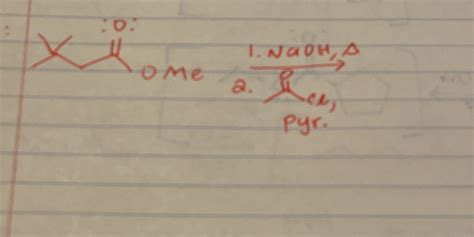 :O:
OMe
1. NaOH, Δ
2.
O
Cl,
pyr.